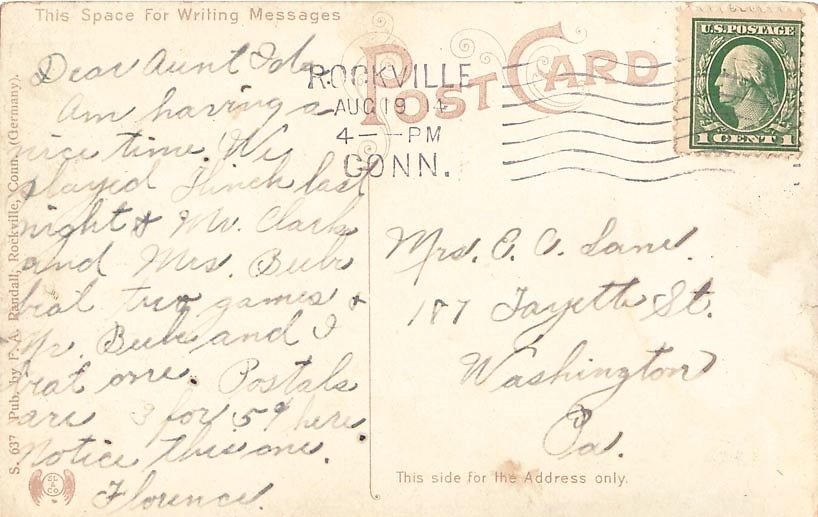 This Space For Writing Messages
Dear Aunt Ida
Am having a
nice time. We
played Flinch last
night & Mr. Clark
and Mrs. Beebe
beat two games &
Mr. Beebe and I
beat one. Postals
are 3 for 5¢ here.
Notice this one.
Florence.
S. 637 Pub. by F. A. Randall, Rockville, Conn. (Germany).
POST CARD
ROCKVILLE
AUG 19 14
4 — PM
CONN.
U.S. POSTAGE
1 CENT 1
Mrs. E. C. Lane.
187 Fayette St.
Washington
Pa.
This side for the Address only.